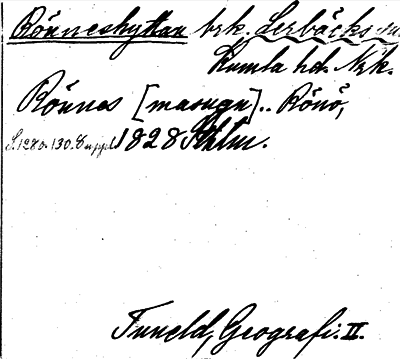 Rönneshyttan brk. Lerbäcks sn.
Kumla hd. Nrk.
Rönnes [masugn].. Rönö,
S. 128 o. 130. Suppl. 1828 Sthlm.
Tuneld, Geografi. II.